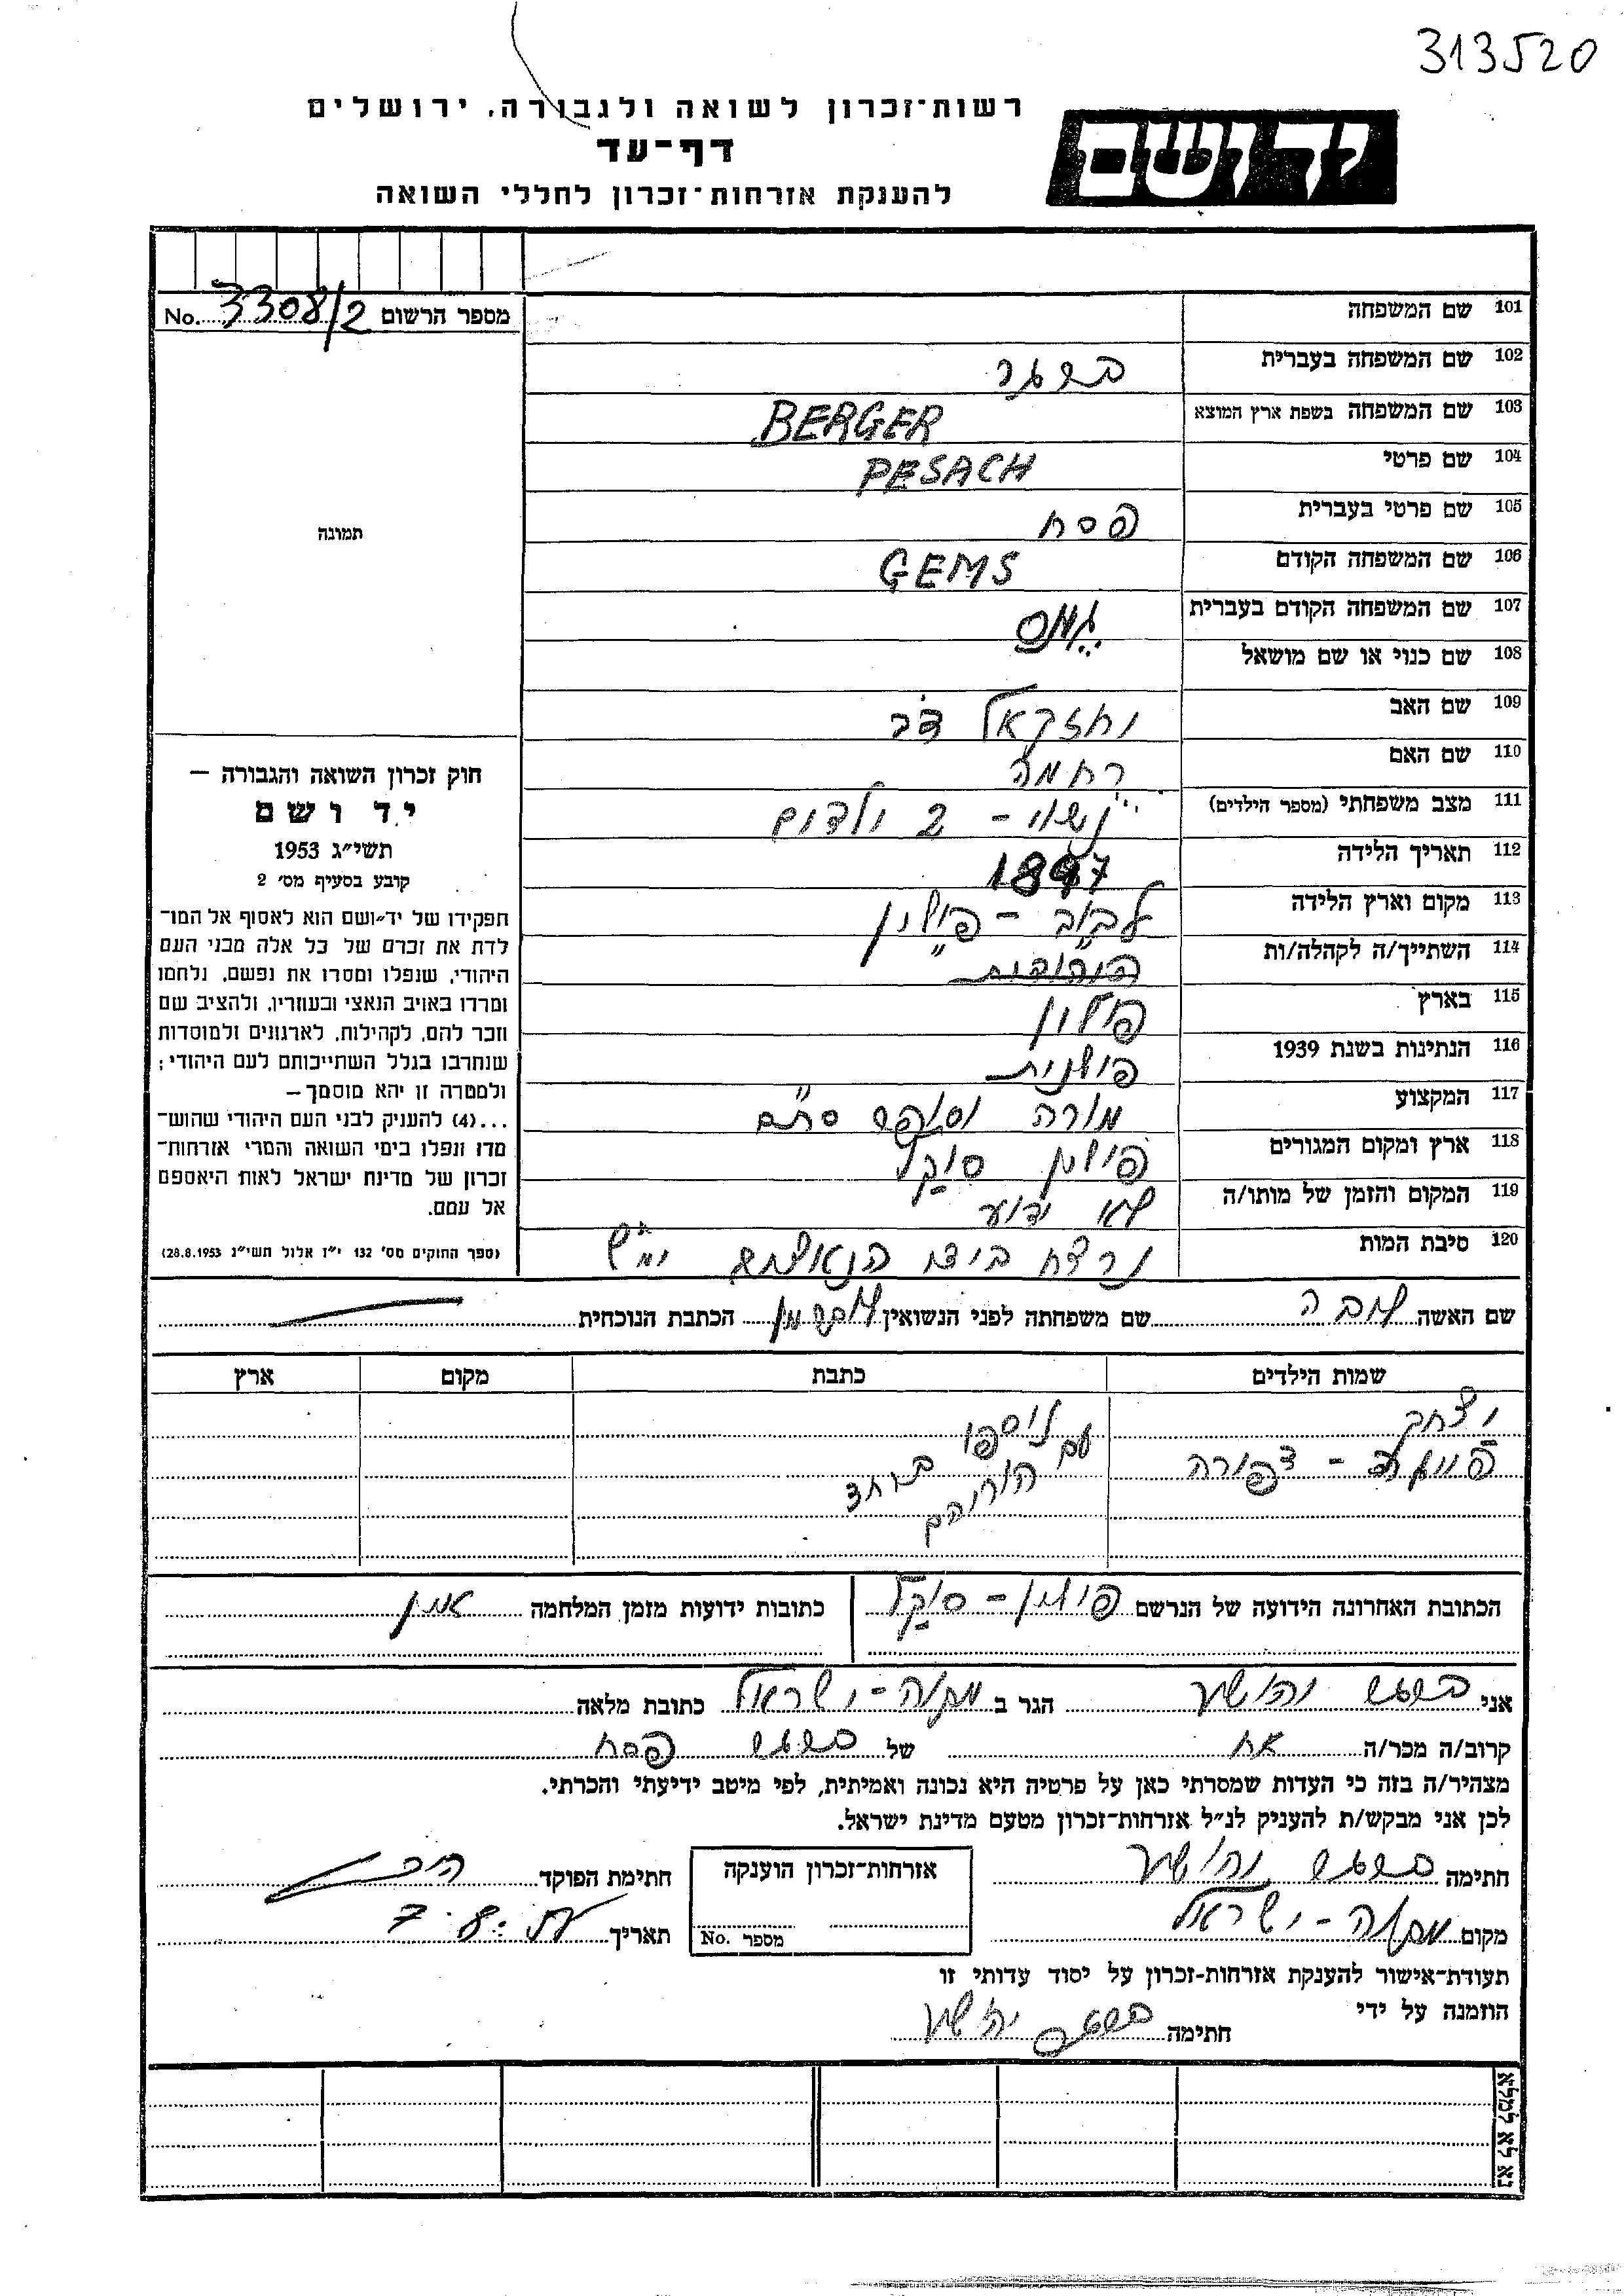 313520
רשות־זכרון לשואה ולגבורה, ירושלים
דף־עד
להענקת אזרחות־זכרון לחללי השואה
יד ושם
מספר הרשום No. 3308/2
תמונה
חוק זכרון השואה והגבורה —
יד ושם
תשי״ג 1953
קובע בסעיף מס׳ 2
תפקידו של יד־ושם הוא לאסוף אל המו־
לדת את זכרם של כל אלה מבני העם
היהודי, שנפלו ומסרו את נפשם, נלחמו
ומרדו באויב הנאצי ובעוזריו, ולהציב שם
וזכר להם, לקהילות, לארגונים ולמוסדות
שנחרבו בגלל השתייכותם לעם היהודי;
ולמטרה זו יהא מוסמך —
...(4) להעניק לבני העם היהודי שהוש־
מדו ונפלו בימי השואה והמרי אזרחות־
זכרון של מדינת ישראל לאות היאספם
אל עמם.
(ספר החוקים מס׳ 132 י״ז אלול תשי״ג 28.8.1953)
101 שם המשפחה
102 שם המשפחה בעברית ברגר
103 שם המשפחה בשפת ארץ המוצא BERGER
104 שם פרטי PESACH
105 שם פרטי בעברית פסח
106 שם המשפחה הקודם GEMS
107 שם המשפחה הקודם בעברית גמס
108 שם כנוי או שם מושאל
109 שם האב יחזקאל דב
110 שם האם רחמה
111 מצב משפחתי (מספר הילדים) נשוי - 2 ילדים
112 תאריך הלידה 1897
113 מקום וארץ הלידה לבוב - פולין
114 השתייך/ה לקהלה/ות היהודית
115 בארץ פולין
116 הנתינות בשנת 1939 פולנית
117 המקצוע מורה וסופר סת״ם
118 ארץ ומקום המגורים פולין סוקל
119 המקום והזמן של מותו/ה לא ידוע
120 סיבת המות נרצח בידי הנאצים ימ״ש
שם האשה שם משפחתה לפני הנשואין הכתבת הנוכחית
שמות הילדים כתבת מקום ארץ
יצחק
צפורה
נוספו ביחד
עם הוריהם
הכתובת האחרונה הידועה של הנרשם פולין - סוקל כתובות ידועות מזמן המלחמה אין
אני ברגר יהושע הגר ב מקוה-ישראל כתובת מלאה
קרוב/ה מכר/ה אח של ברגר פסח
מצהיר/ה בזה כי העדות שמסרתי כאן על פרטיה היא נכונה ואמיתית, לפי מיטב ידיעתי והכרתי.
לכן אני מבקש/ת להעניק לנ״ל אזרחות־זכרון מטעם מדינת ישראל.
חתימה ברגר יהושע
מקום מקוה-ישראל
אזרחות־זכרון הוענקה
מספר No.
חתימת הפוקד
תאריך
תעודת־אישור להענקת אזרחות־זכרון על יסוד עדותי זו
הוזמנה על ידי
חתימה ברגר יהושע
נא לא למלא